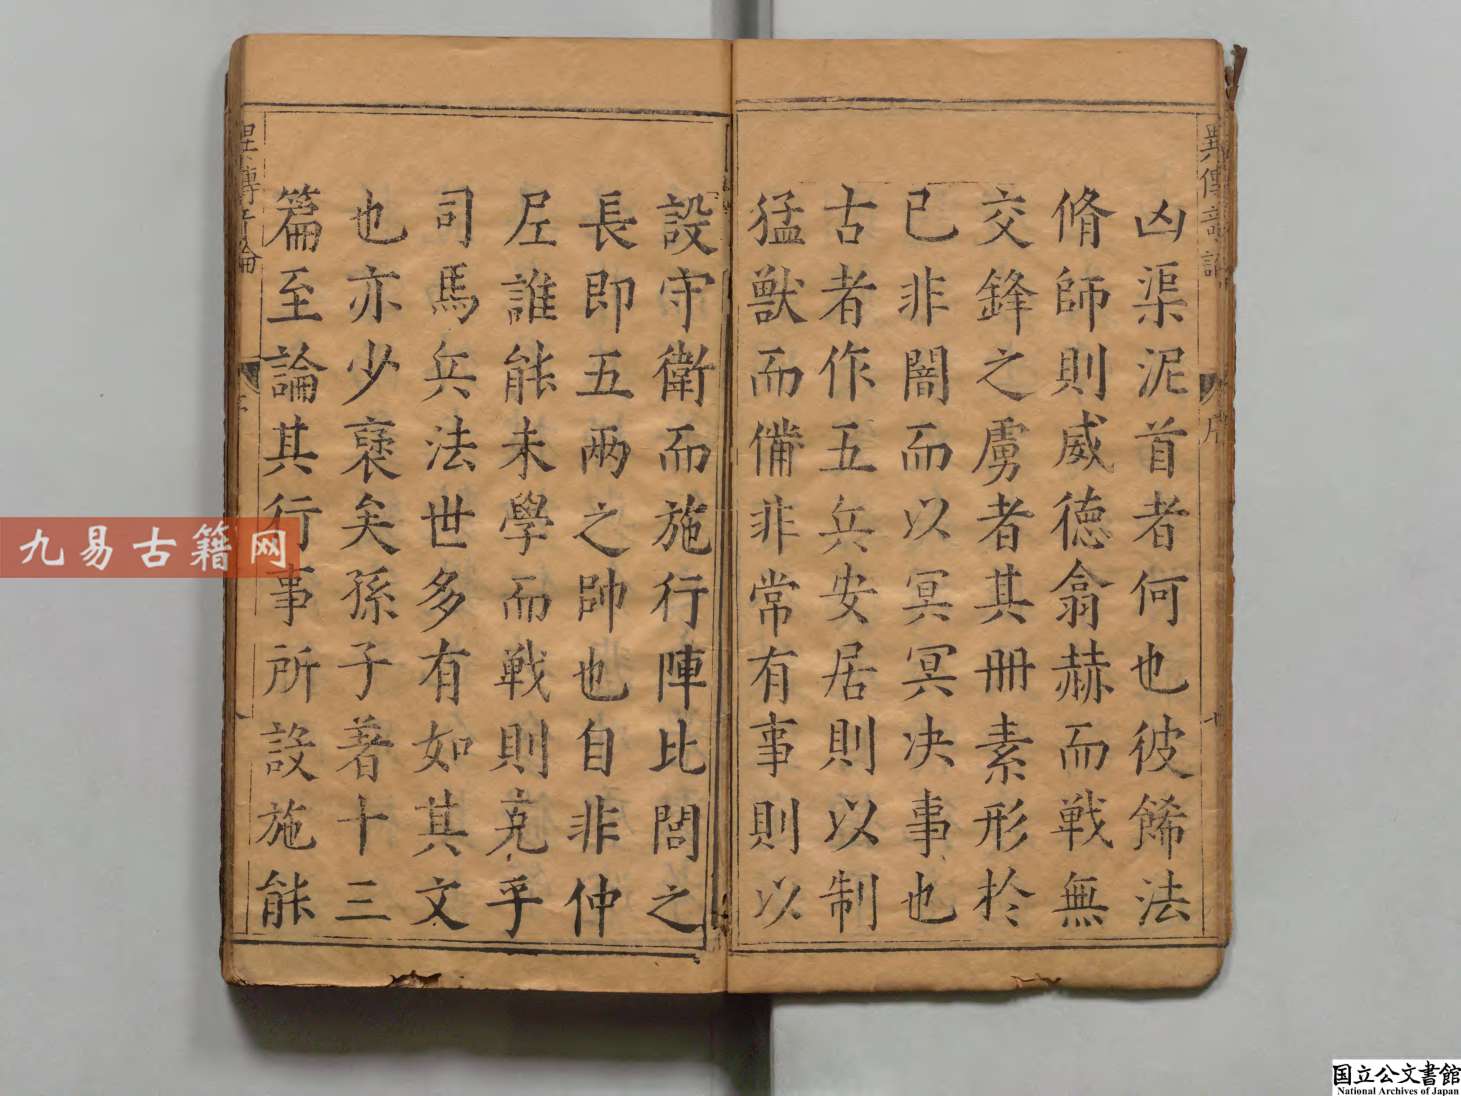 凶渠泥首者何也彼餙法
脩師則威德翕赫而戰無
交鋒之虜者其冊素形於
已非闇而以冥冥决事也
古者作五兵安居則以制
猛獸而備非常有事則以
設守衛而施行陣比閭之
長即五兩之帥也自非仲
尼誰能未學而戰則克乎
司馬兵法世多有如其文
也亦少褒矣孫子著十三
篇至論其行事所設施能
九易古籍网
国立公文書館
National Archives of Japan